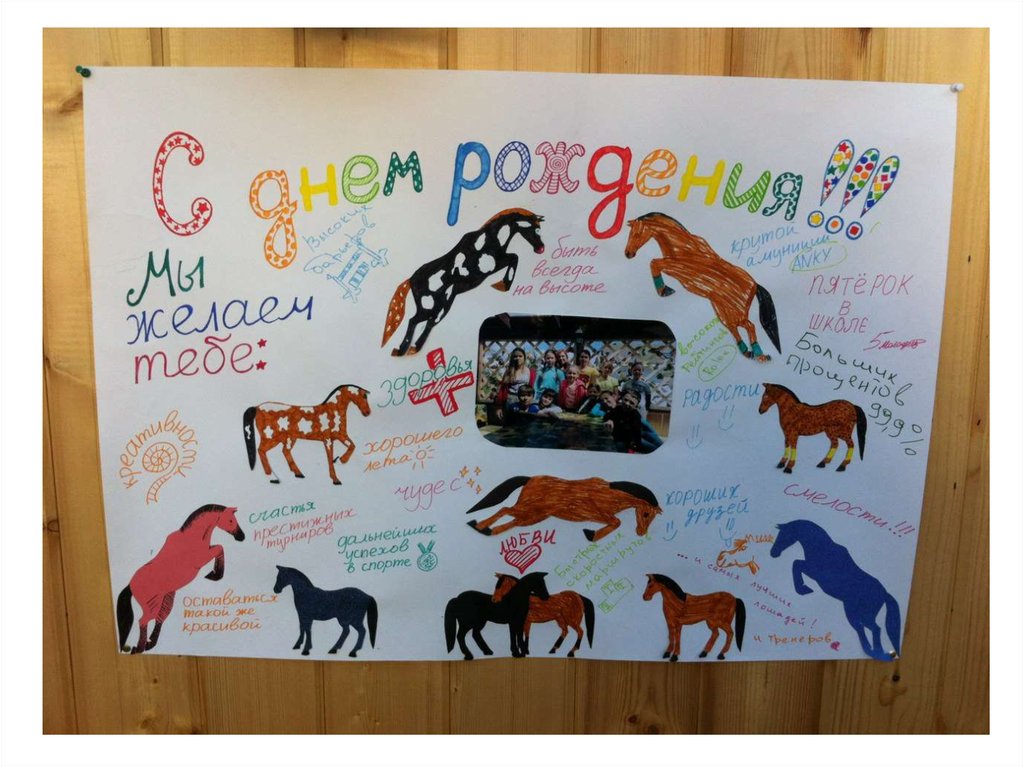 С днем рождения!!!
Мы
желаем
тебе:
высоких
барьеров
быть
всегда
на высоте
крутой
амуниции
ANKY
ПЯТЁРОК
В
ШКОЛЕ
5 молодец
Больших
процентов
99,9%
здоровья
высоких
радости
креативности
хорошего
лета
чудес
счастья
престижных
турниров
дальнейших
успехов
в спорте
ЛЮБВИ
Быстрых
скоростных
маршрутов
хороших
друзей
смелости!!!
... и самых лучших
лошадей!
и тренеров
оставаться
такой же
красивой